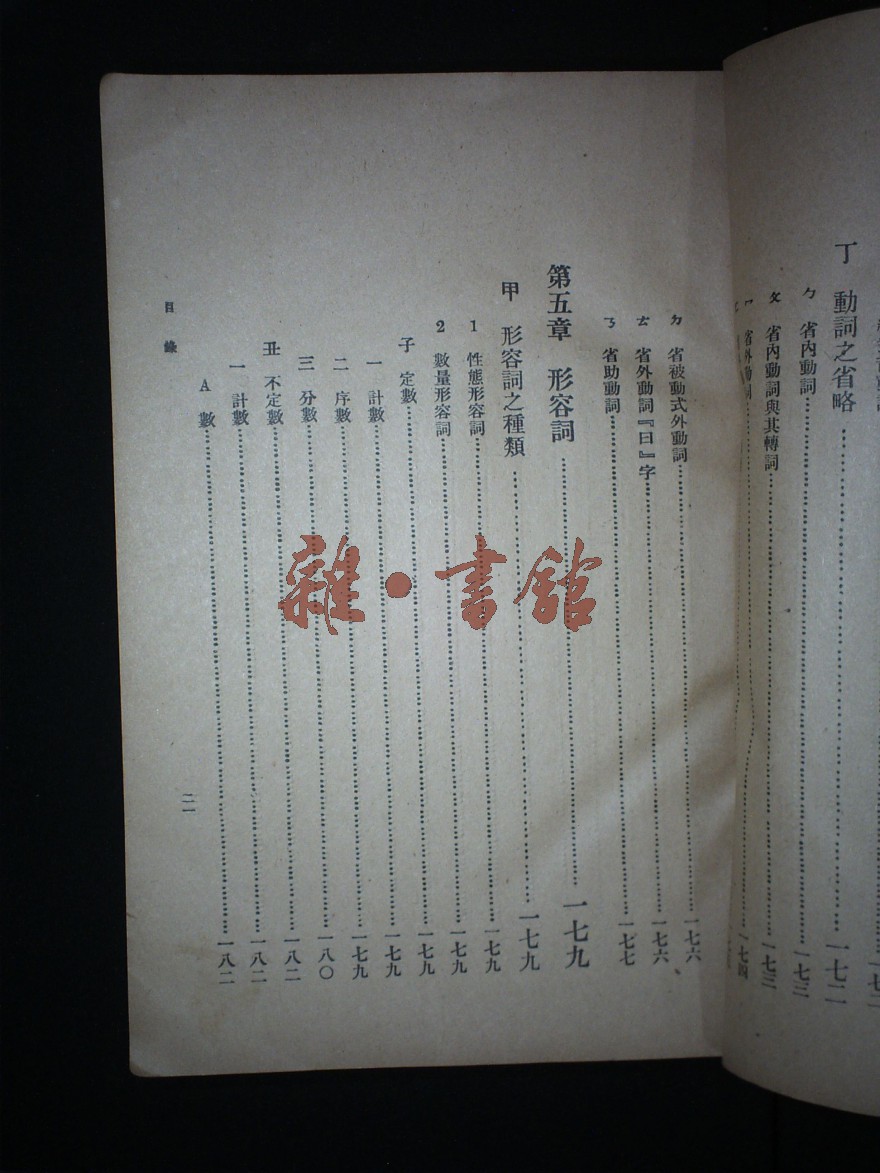 丁 動詞之省略……一七二
ㄅ 省內動詞……一七三
ㄆ 省內動詞與其轉詞……一七三
ㄇ 省外動詞……一七四
ㄉ 省被動式外動詞……一七六
ㄊ 省外動詞『曰』字……一七六
ㄋ 省助動詞……一七七
第五章 形容詞……一七九
甲 形容詞之種類……一七九
1 性態形容詞……一七九
2 數量形容詞……一七九
子 定數……一七九
一 計數……一七九
二 序數……一七九
三 分數……一八〇
丑 不定數……一八二
一 計數……一八二
A 數……一八二
目錄
二一
雜•書館